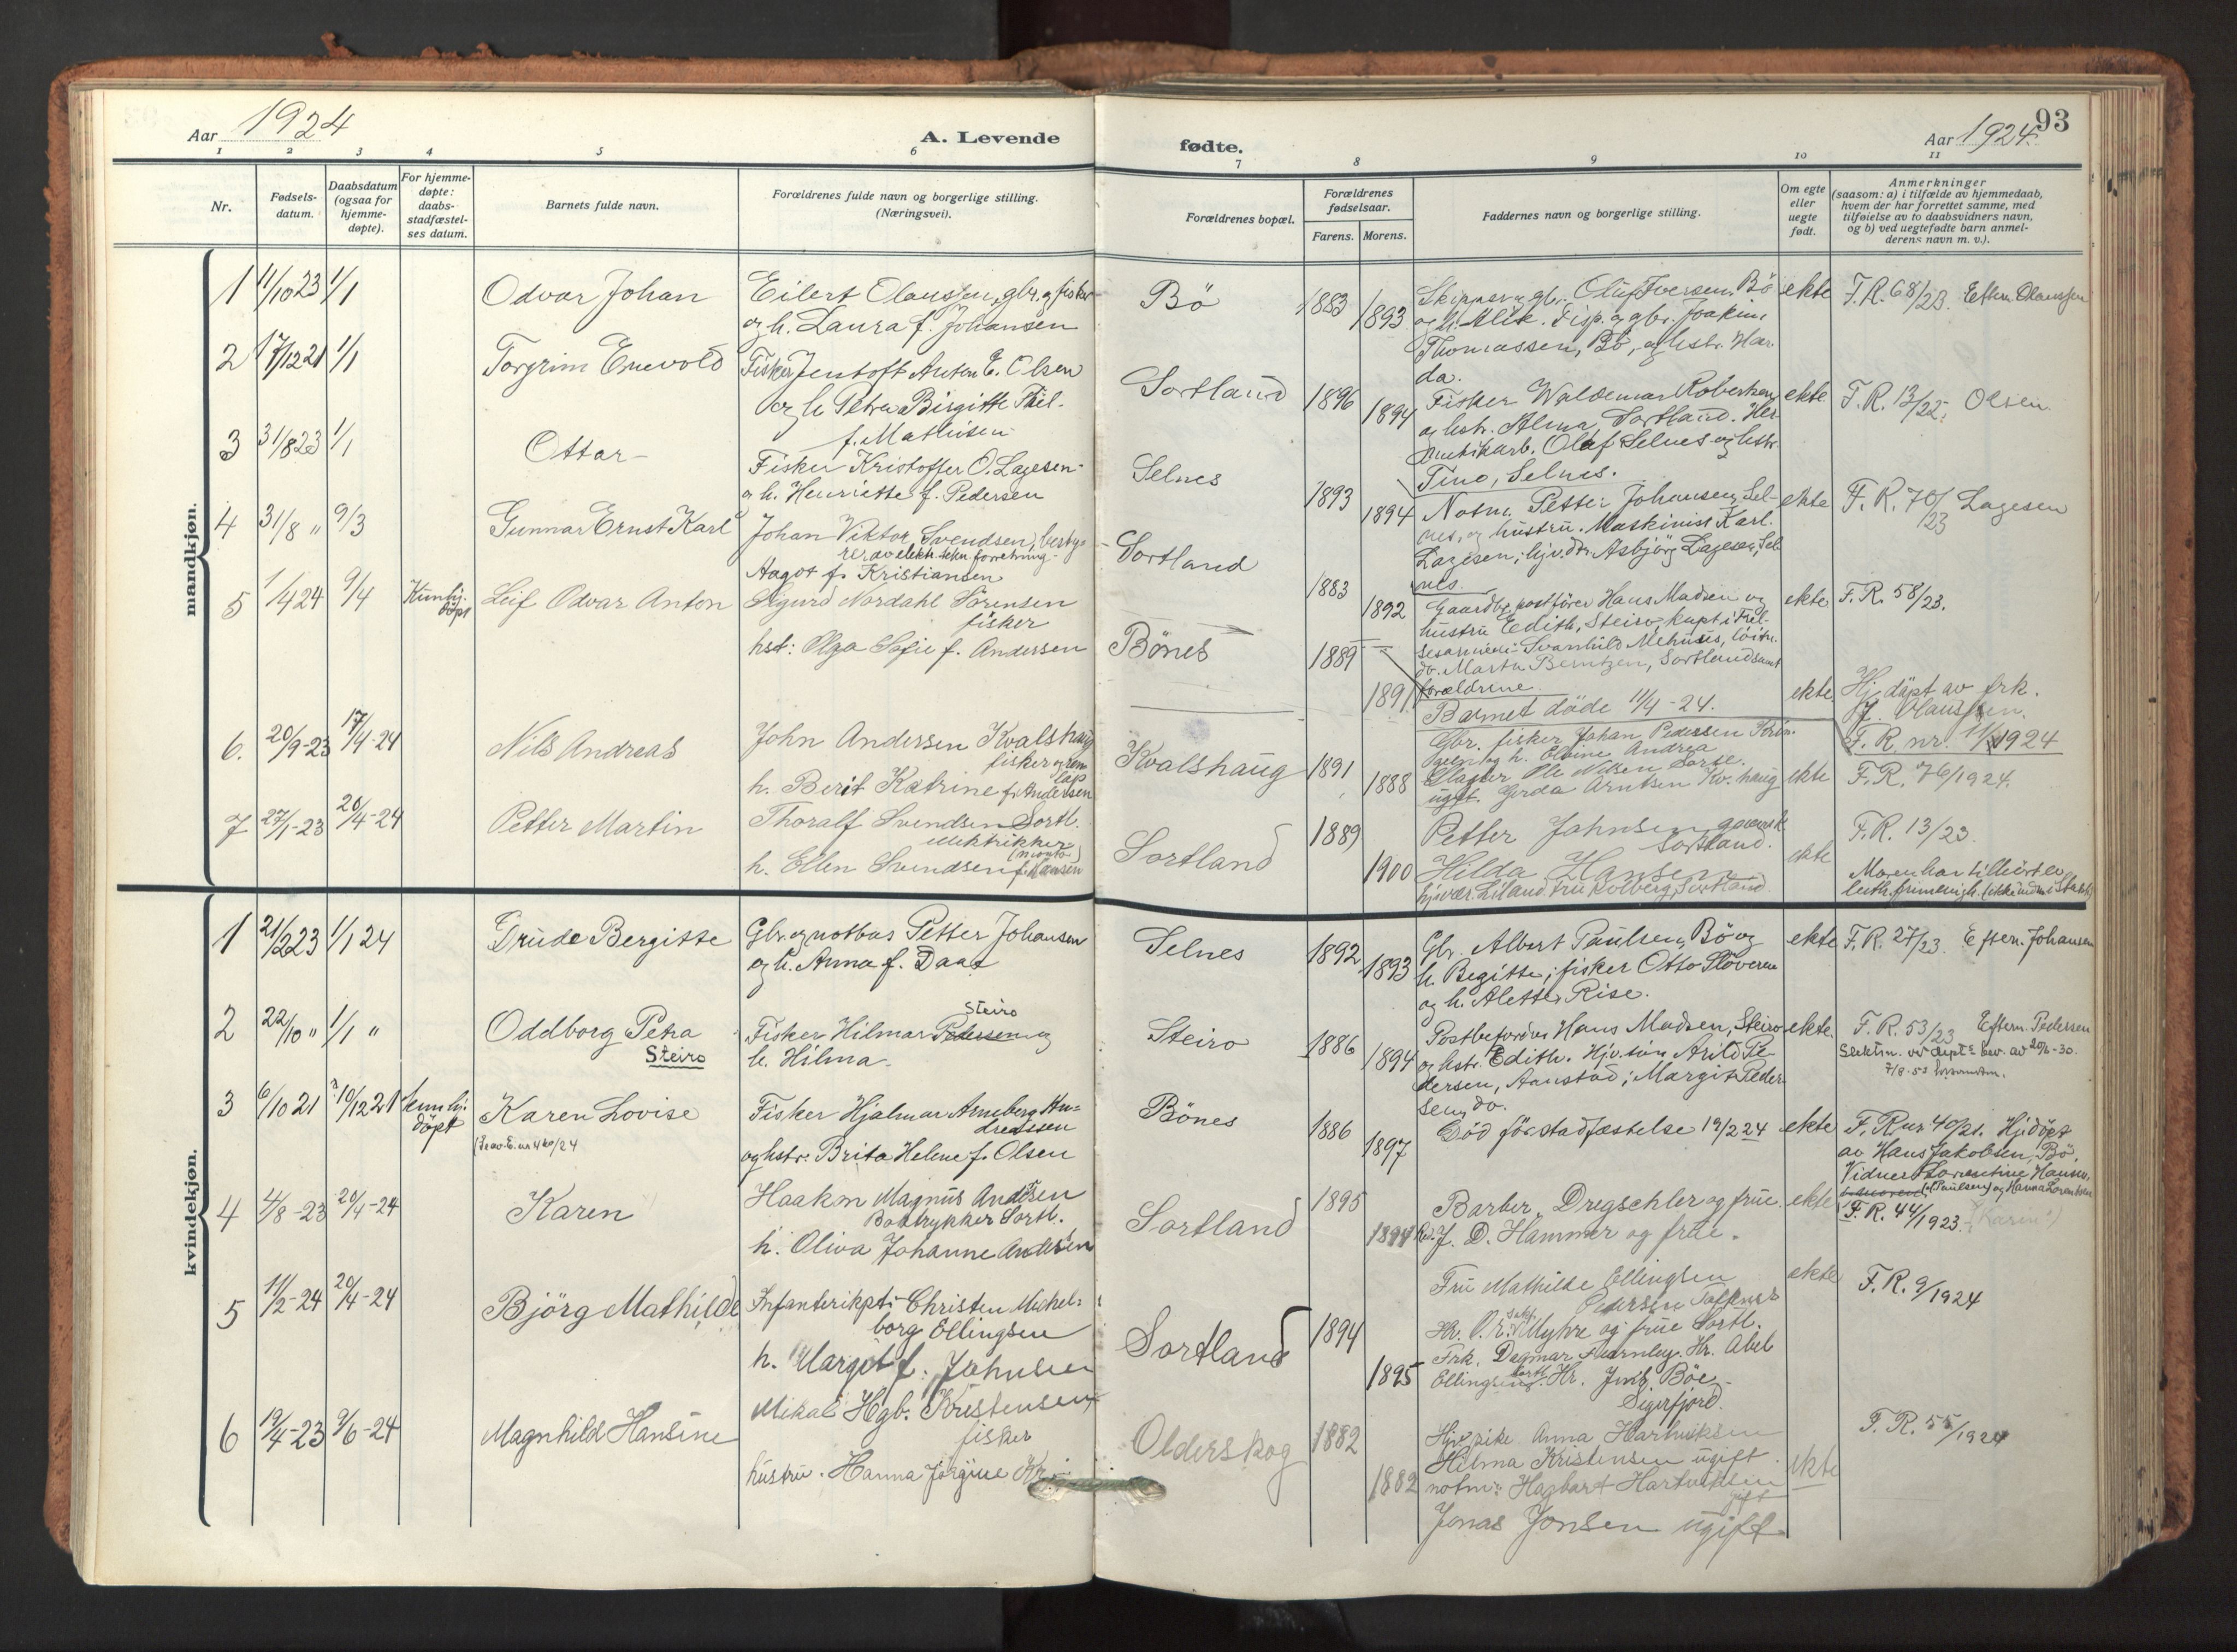 Aar 1924
A. Levende
1 2 3 4 5 6
Nr.
Fødsels-
datum.
Daabsdatum
(ogsaa for
hjemme-
døpte).
For hjemme-
døpte:
daabs-
stadfæstel-
ses datum.
Barnets fulde navn.
Forældrenes fulde navn og borgerlige stilling.
(Næringsvei).
mandkjøn.
1 11/10 23 1/1 Odvar Johan Eilert Olaussen, gbr. og fisker
og h. Laura f. Johansen
2 17/12 21 1/1 Torgrim Enevold Fisker Jentoft Anton E. Olsen
og h Petra Birgitte
f. Mathisen
3 31/8 23 1/1 Ottar
Fisker Kristoffer O. Lagesen
og h. Henriette f. Pedersen
4 31/8 " 9/3 Gunnar Ernst Karl Johan Viktor Svendsen, besty-
rer av elektr. tekn. forretning
Aagot f. Kristiansen
5 1/4 24 9/4 Kun hj.
döpt Leif Odvar Anton Sigurd Nordahl Sörensen
fisker
hst: Olga Sofie f. Andersen
6. 20/9-23 17/4-24 Nils Andreas John Andersen Kvalshaug
fisker
h. Berit Katrine f. Andersen
7 27/1-23 20/4-24 Petter Martin Thoralf Svendsen Sortl.
elektrikker
h. Ellen Svendsen f. Hansen
kvindekjøn.
1 21/2 23 1/1 24 Trude Bergitte Gbr. og notbas Petter Johansen
og h. Anna f. Daae
2 22/10 " 1/1 " Oddborg Petra
Steiro
Steiro
Fisker Hilmar Pedersen og
h. Hilma
3 6/10 21 10/12 21 kun hj.
döpt Karen Lovise Fisker Hjalmar Arneberg An-
dreassen
og hstr. Brita Helene f. Olsen
4 4/8-23 20/4-24 Karen Haakon Magnus Andersen
Boktrykker Sortl.
h. Oliva Johanne Andersen
5 11/2-24 20/4-24 Björg Mathilde Infanterikpt. Christen Michel-
borg Ellingsen
h. Margot f. Johnsen
6 19/4-23 9/6-24 Magnhild Hansine Mikal Hgb. Kristensen
fisker
hustru. Hanna Jörgine Kr.
93
fødte.
Aar 1924.
7 8 9 10 11
Forældrenes bopæl.
Forældrenes
fødselsaar.
Farens. Morens.
Faddernes navn og borgerlige stilling.
Om egte
eller
uegte
født.
Anmerkninger
(saasom: a) i tilfælde av hjemmedaab,
hvem der har forrettet samme, med
tilføielse av to daabsvidners navn,
og b) ved uegtefødte barn anmel-
derens navn m. v.).
Bö 1883 1893 Skipper og gbr. Oluf Iversen, Bö ekte F.R. 68/23. Eftern. Olaussen
og h. Alik. Fisp. og gbr. Joakim
Thomassen, Bö, og hstr. Han-
da.
Sortland 1896 1894 Fisker Waldemar Robertsen ekte F.R. 13/22, Olsen
og hstr. Alma, Sortland. Her-
Olaf Selnes og hstr.
Tino, Selnes.
Selnes 1893 1894 Notm. Petter Johansen, Sel- ekte F.R. 70/23 Lagesen
nes, og hustru. Maskinist Karl
Lagesen; hjv. dtr. Asbjörg Lagesen, Sel-
nes
Sortland 1883 1892 Gaardbr. postförer Hans Madsen og ekte F.R. 58/23.
hustru Edith, Steiro, kapt. i Frel-
sesarmeen Svanhild Mehuus, löitn.
do. Marta Berntzen, Sortland samt
forældrene.
Bönes 1889 1891 Barnet döde 11/4-24. ekte Hj. döpt av frk.
J. Olaussen.
F.R. nr. 11/1924
Kvalshaug 1891 1888 Gbr. fisker Johan Pedersen
og h. Elvine Andrea
Slagter Ole Nilsen Sorse.
ugift. Gerda Arntsen Kv.haug ekte F.R. 76/1924.
Sortland 1889 1900 Petter Johnsen
Sortland.
Hilda Hansen ekte F.R. 13/23
Moren har tilhört ev.
luth. frimenigh.
Selnes 1892 1893 Gbr. Albert Paulsen, Bö og ekte F.R. 27/23. Eftern. Johansen
h. Begitte; fisker Otto Stöveren
og h. Alette, Rise.
Steiro 1886 1894 Postbefordrer Hans Madsen, Steiro ekte F.R. 53/23 Eftern. Pedersen
og hstr. Edith. Hjv. sön Arild Pe-
dersen, Aanstad; Margit Peder-
sen, do.
Bönes 1886 1897 Död för stadfæstelse 19/2 24 ekte F.R. nr 40/21. Hj. döpt
av Hans Jakobsen, Bö.
Vidner Lorentine Hansen,
(f. Paulsen) og Hanna Lorentsen
Sortland 1895 1894 Barber Dregschler og frue. ekte F.R. 44/1923. (Karin?)
J. D. Hammer og frue.
Sortland 1894 1895 Fru Mathilde Ellingsen ekte F.R. 9/1924
Pedersen
Hr. Myhre og frue Sortl.
Frk. Dagmar Fearnley. Hr. Abel
Ellingsen Sortl. Hr. Jens Böe
Sigerfjord.
Olderskog 1882 1882 Hjv. pike Anna Hartviksen ekte F.R. 55/1924
Hilma Kristensen ugift
notm: Hagbart Hartviksen
gift
Jonas Jonsen ugift